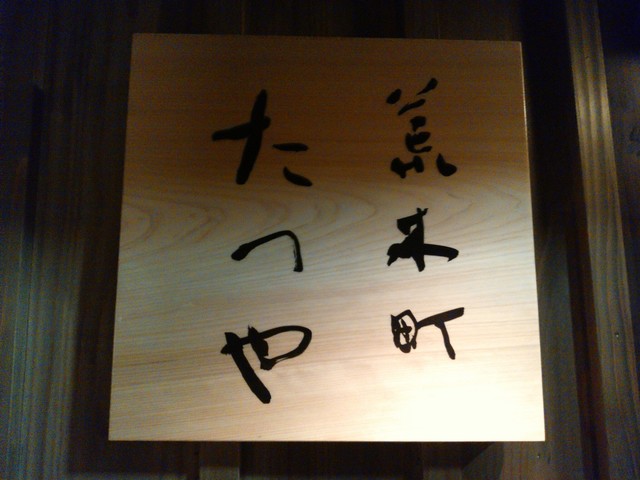 荒木町
たつや